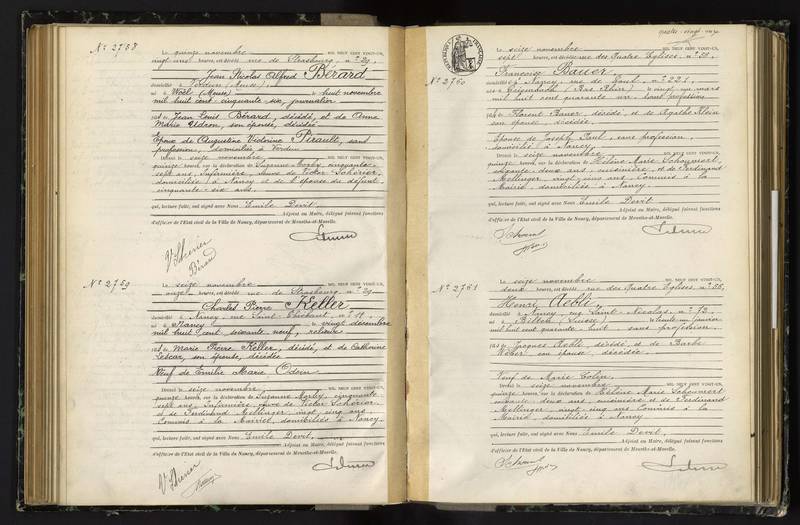 N° 2758
Le quinze novembre MIL NEUF CENT VINGT-UN,
vingt une heures, est décédé rue de Strasbourg, n° 29,
Jean Nicolas Alfred Bérard
domicilié à Verdun (Meuse),
né à Woël (Meuse) le huit novembre
mil huit cent cinquante six, journalier
fils de Jean Louis Bérard, décédé, et de Anne
Marie Adron, son épouse, décédée
Epoux de Augustine Victorine Pérault, sans
profession, domiciliée à Verdun
Dressé le seize novembre, MIL NEUF CENT VINGT-UN,
quinze heures, sur la déclaration de Suzanne Morby, cinquante
sept ans, Infirmière, veuve de Victor Schérier,
domiciliée à Nancy et de l'épouse du défunt,
cinquante six ans.
qui, lecture faite, ont signé avec Nous Emile Devit,
Adjoint au Maire, délégué faisant fonctions
d'officier de l'Etat civil de la Ville de Nancy, département de Meurthe-et-Moselle.
V Scherier
Bérard
N° 2759
Le seize novembre MIL NEUF CENT VINGT-UN,
onze heures, est décédé rue de Strasbourg, n° 29
Charles Pierre Keller
domicilié à Nancy, rue Saint Thiébaut, n° 51,
né à Nancy le vingt décembre
mil huit cent soixante neuf,
fils de Marie Pierre Keller, décédé, et de Catherine
Lescar, son épouse, décédée
Veuf de Emélie Marie Odoin
Dressé le seize novembre, MIL NEUF CENT VINGT-UN,
quinze heures, sur la déclaration de Suzanne Morby, cinquante
sept ans, Infirmière, veuve de Victor Schérier
et de Ferdinand Mellinger, vingt cinq ans,
Commis à la Mairie, domiciliés à Nancy.
qui, lecture faite, ont signé avec Nous Emile Devit,
Adjoint au Maire, délégué faisant fonctions
d'officier de l'Etat civil de la Ville de Nancy, département de Meurthe-et-Moselle.
V Scherier
N° 2760
Le seize novembre MIL NEUF CENT VINGT-UN,
sept heures, est décédée rue des Quatre Eglises, n° 50,
Françoise Bauer
domiciliée à Nancy, rue de Toul, n° 221,
le vingt un mars
mil huit cent quarante un, sans profession
fille de Florent Bauer, décédé, et de Agathe Klein
son épouse, décédée.
Epouse de Joseph Paul, sans profession,
domicilié à Nancy.
Dressé le seize novembre, MIL NEUF CENT VINGT-UN,
quinze heures, sur la déclaration de Hélène Marie Schouvert,
soixante deux ans, cuisinière, et de Ferdinand
Mellinger, vingt cinq ans, Commis à la
Mairie, domiciliés à Nancy.
qui, lecture faite, ont signé avec Nous Emile Devit
Adjoint au Maire, délégué faisant fonctions
d'officier de l'Etat civil de la Ville de Nancy, département de Meurthe-et-Moselle.
N° 2761
Le seize novembre MIL NEUF CENT VINGT-UN,
douze heures, est décédé rue des Quatre Eglises, n° 50,
Henri Aebli,
domicilié à Nancy, rue Saint-Nicolas, n° 72,
né à Bilten, Suisse, le trente un janvier
mil huit cent quarante huit, sans profession.
fils de Jacques Aebli, décédé, et de Barbe
Weber son épouse, décédée.
Veuf de Marie Colin.
Dressé le seize novembre, MIL NEUF CENT VINGT-UN,
quinze heures, sur la déclaration de Hélène Marie Schouvert
soixante deux ans, cuisinière et de Ferdinand
Mellinger, vingt cinq ans, Commis à la
Mairie, domiciliés à Nancy.
qui, lecture faite, ont signé avec Nous Emile Devit,
Adjoint au Maire, délégué faisant fonctions
d'officier de l'Etat civil de la Ville de Nancy, département de Meurthe-et-Moselle.